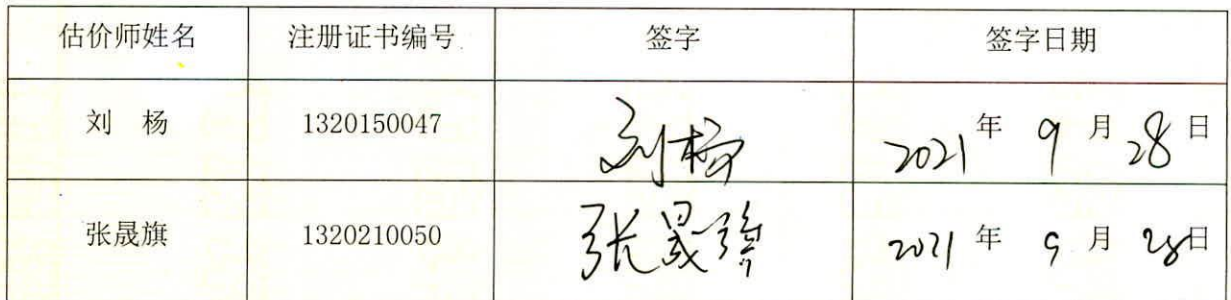 估价师姓名 注册证书编号 签字 签字日期
刘 杨 1320150047 刘杨 2021年 9月 28日
张晟旗 1320210050 张晟旗 2021年 9月 28日